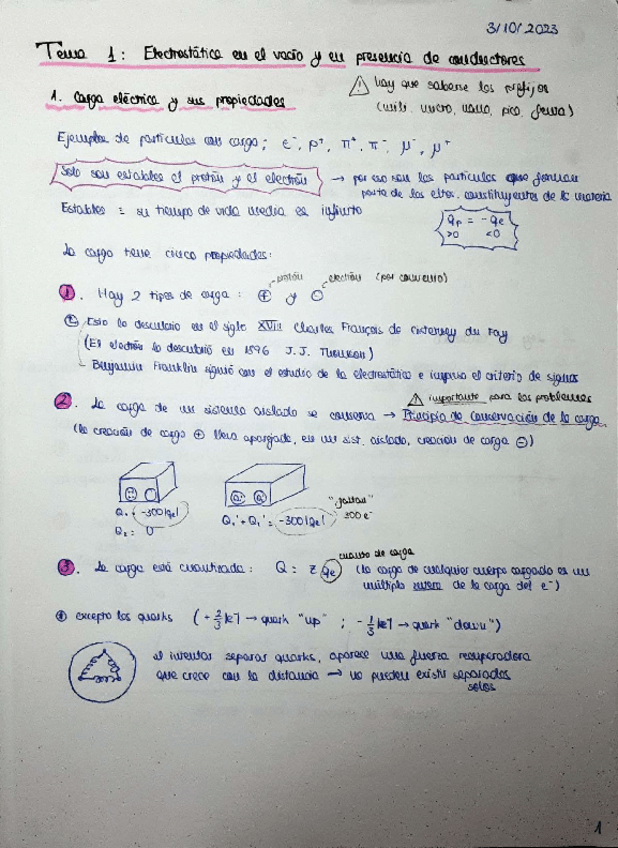 3/10/2023
Tema 1: Electrostática en el vacío y en presencia de conductores
⚠ hay que saberse los prefijos
(mili, micro, nano, pico, femto)
1. Carga eléctrica y sus propiedades
Ejemplos de partículas con carga: e⁻, p⁺, π⁺, π⁻, μ⁻, μ⁺
Solo son estables el protón y el electrón → por eso son las partículas que forman
parte de los eltos. constituyentes de la materia
Estables = su tiempo de vida media es infinito
Qp = -Qe
>0 <0
La carga tiene cinco propiedades:
protón electrón (por convenio)
1. Hay 2 tipos de carga: ⊕ y ⊖
Esto lo descubrió en el siglo XVIII Charles François de Cisternay du Fay
(El electrón lo descubrió en 1896 J.J. Thomson)
- Benjamin Franklin siguió con el estudio de la electrostática e impuso el criterio de signos
⚠ importante para los problemas
2. La carga de un sistema aislado se conserva → Principio de conservación de la carga
(la creación de carga ⊕ lleva aparejada, en un sist. aislado, creación de carga ⊖)
Q₁ = -300|qe|
Q₂ = 0
Q₁' + Q₂' = -300|qe|
"faltan"
300 e⁻
cuanto de carga
3. La carga está cuantizada: Q = z qe (la carga de cualquier cuerpo cargado es un
múltiplo entero de la carga del e⁻)
excepto los quarks (+2/3|e| → quark "up" ; -1/3|e| → quark "down")
al intentar separar quarks, aparece una fuerza recuperadora
que crece con la distancia → no pueden existir separados
solos
1